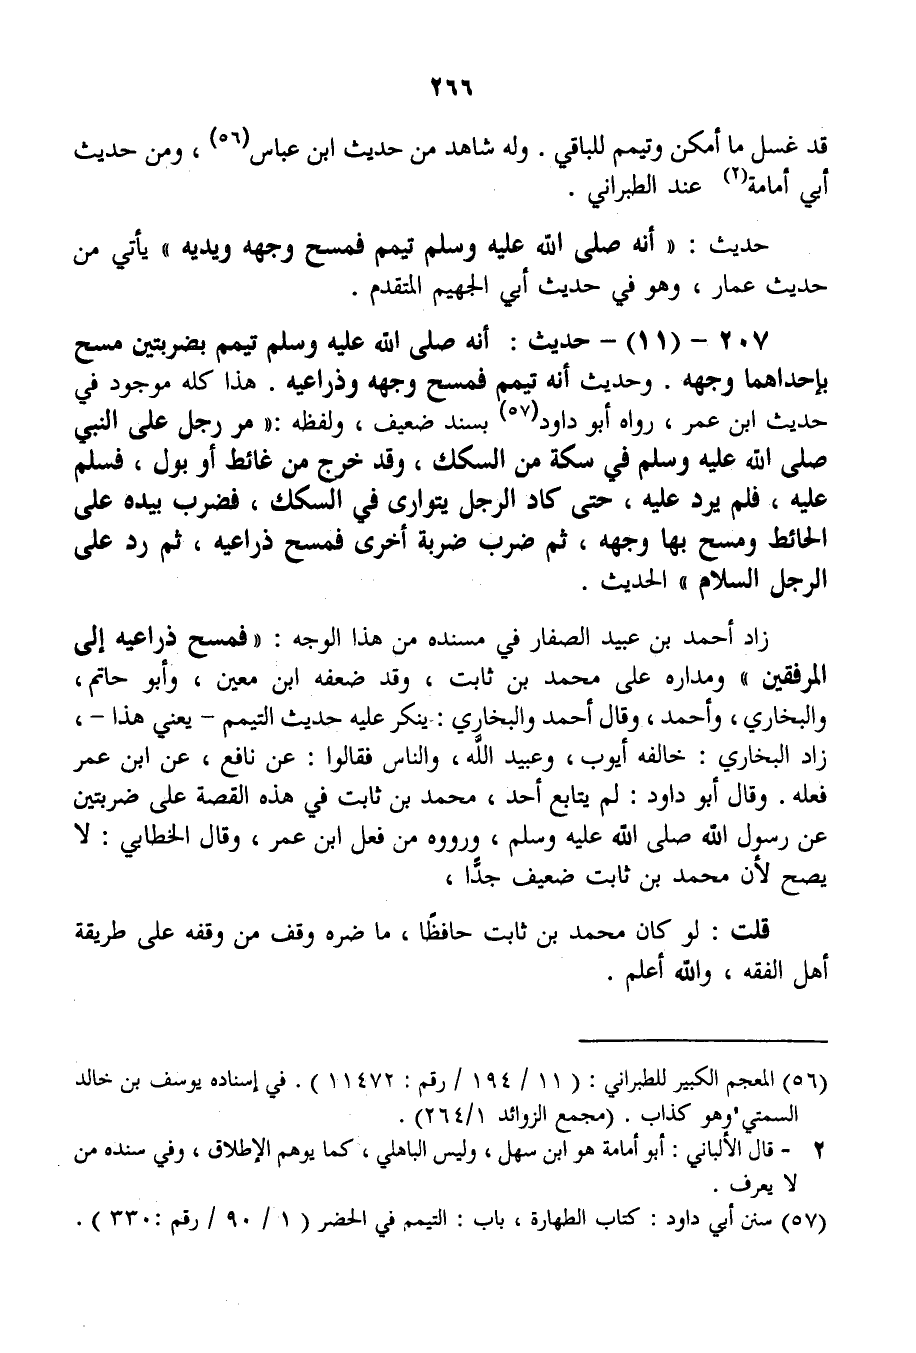 ٢٦٦
قد غسل ما أمكن وتيمم للباقي . وله شاهد من حديث ابن عباس(٥٦) ، ومن حديث
أبي أمامة(٢) عند الطبراني .
حديث : « أنه صلى الله عليه وسلم تيمم فمسح وجهه ويديه » يأتي من
حديث عمار ، وهو في حديث أبي الجهيم المتقدم .
٢٠٧ – (١١) – حديث : أنه صلى الله عليه وسلم تيمم بضربتين مسح
بإحداهما وجهه . وحديث أنه تيمم فمسح وجهه وذراعيه . هذا كله موجود في
حديث ابن عمر ، رواه أبو داود(٥٧) بسند ضعيف ، ولفظه :« مر رجل على النبي
صلى الله عليه وسلم في سكة من السكك ، وقد خرج من غائط أو بول ، فسلم
عليه ، فلم يرد عليه ، حتى كاد الرجل يتوارى في السكك ، فضرب بيده على
الحائط ومسح بها وجهه ، ثم ضرب ضربة أخرى فمسح ذراعيه ، ثم رد على
الرجل السلام » الحديث .
زاد أحمد بن عبيد الصفار في مسنده من هذا الوجه : « فمسح ذراعيه إلى
المرفقين » ومداره على محمد بن ثابت ، وقد ضعفه ابن معين ، وأبو حاتم ،
والبخاري ، وأحمد ، وقال أحمد والبخاري : ينكر عليه حديث التيمم – يعني هذا – ،
زاد البخاري : خالفه أيوب ، وعبيد اللَّه ، والناس فقالوا : عن نافع ، عن ابن عمر
فعله . وقال أبو داود : لم يتابع أحد ، محمد بن ثابت في هذه القصة على ضربتين
عن رسول الله صلى الله عليه وسلم ، ورووه من فعل ابن عمر ، وقال الخطابي : لا
يصح لأن محمد بن ثابت ضعيف جدًّا ،
قلت : لو كان محمد بن ثابت حافظًا ، ما ضره وقف من وقفه على طريقة
أهل الفقه ، والله أعلم .
(٥٦) المعجم الكبير للطبراني : ( ١١ / ١٩٤ / رقم : ١١٤٧٢ ) . في إسناده يوسف بن خالد
السمتي وهو كذاب . (مجمع الزوائد ٢٦٤/١) .
٢ - قال الألباني : أبو أمامة هو ابن سهل ، وليس الباهلي ، كما يوهم الإطلاق ، وفي سنده من
لا يعرف .
(٥٧) سنن أبي داود : كتاب الطهارة ، باب : التيمم في الحضر ( ١ / ٩٠ / رقم : ٣٣٠ ) .